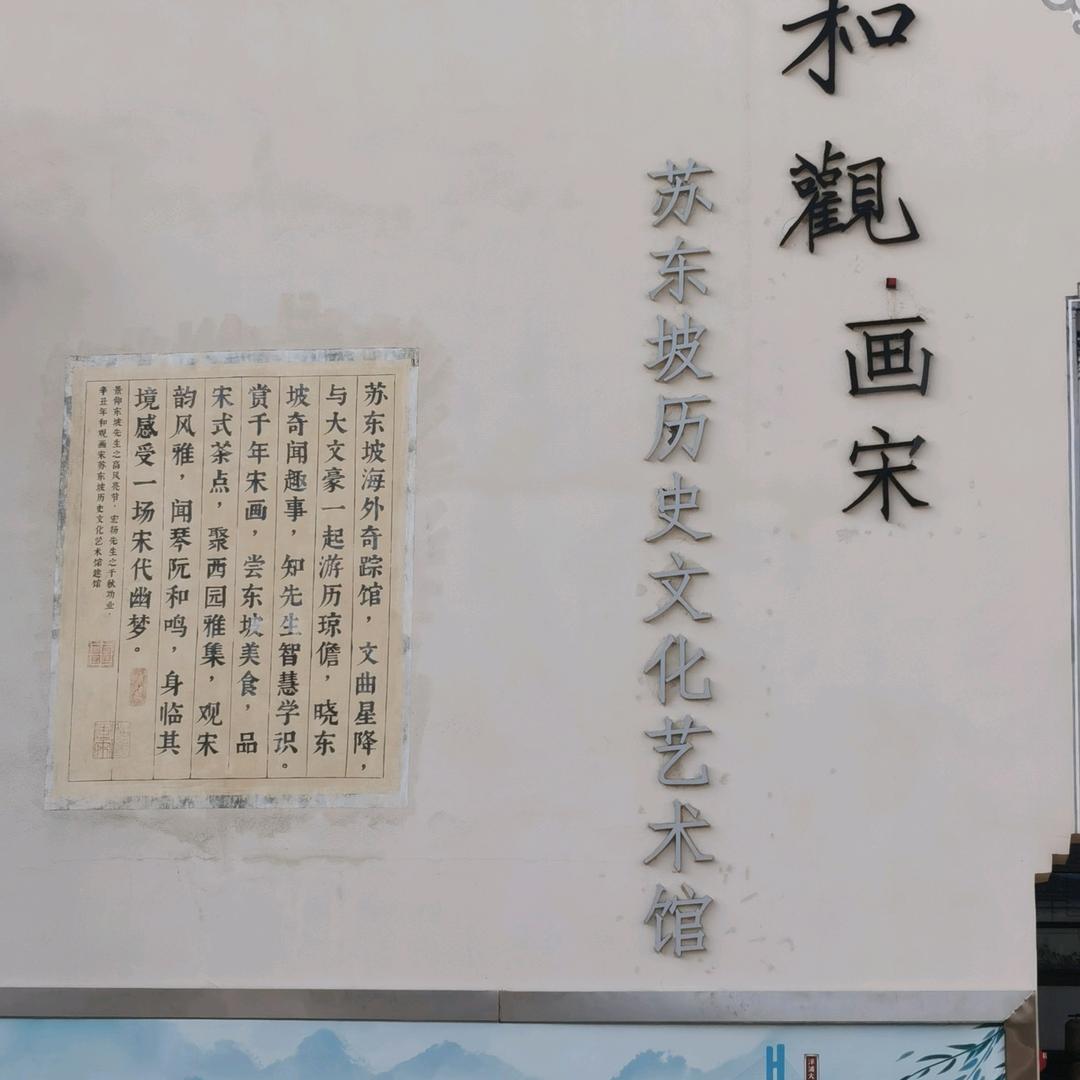 和觀·画宋
苏东坡历史文化艺术馆
苏东坡海外奇踪馆，文曲星降，
与大文豪一起游历琼儋，晓东
坡奇闻趣事，知先生智慧学识。
赏千年宋画，尝东坡美食，品
宋式茶点，聚西园雅集，观宋
韵风雅，闻琴阮和鸣，身临其
境感受一场宋代幽梦。
景仰东坡先生之高风亮节，宏扬先生之千秋功业，
辛丑年和观画宋苏东坡历史文化艺术馆建馆